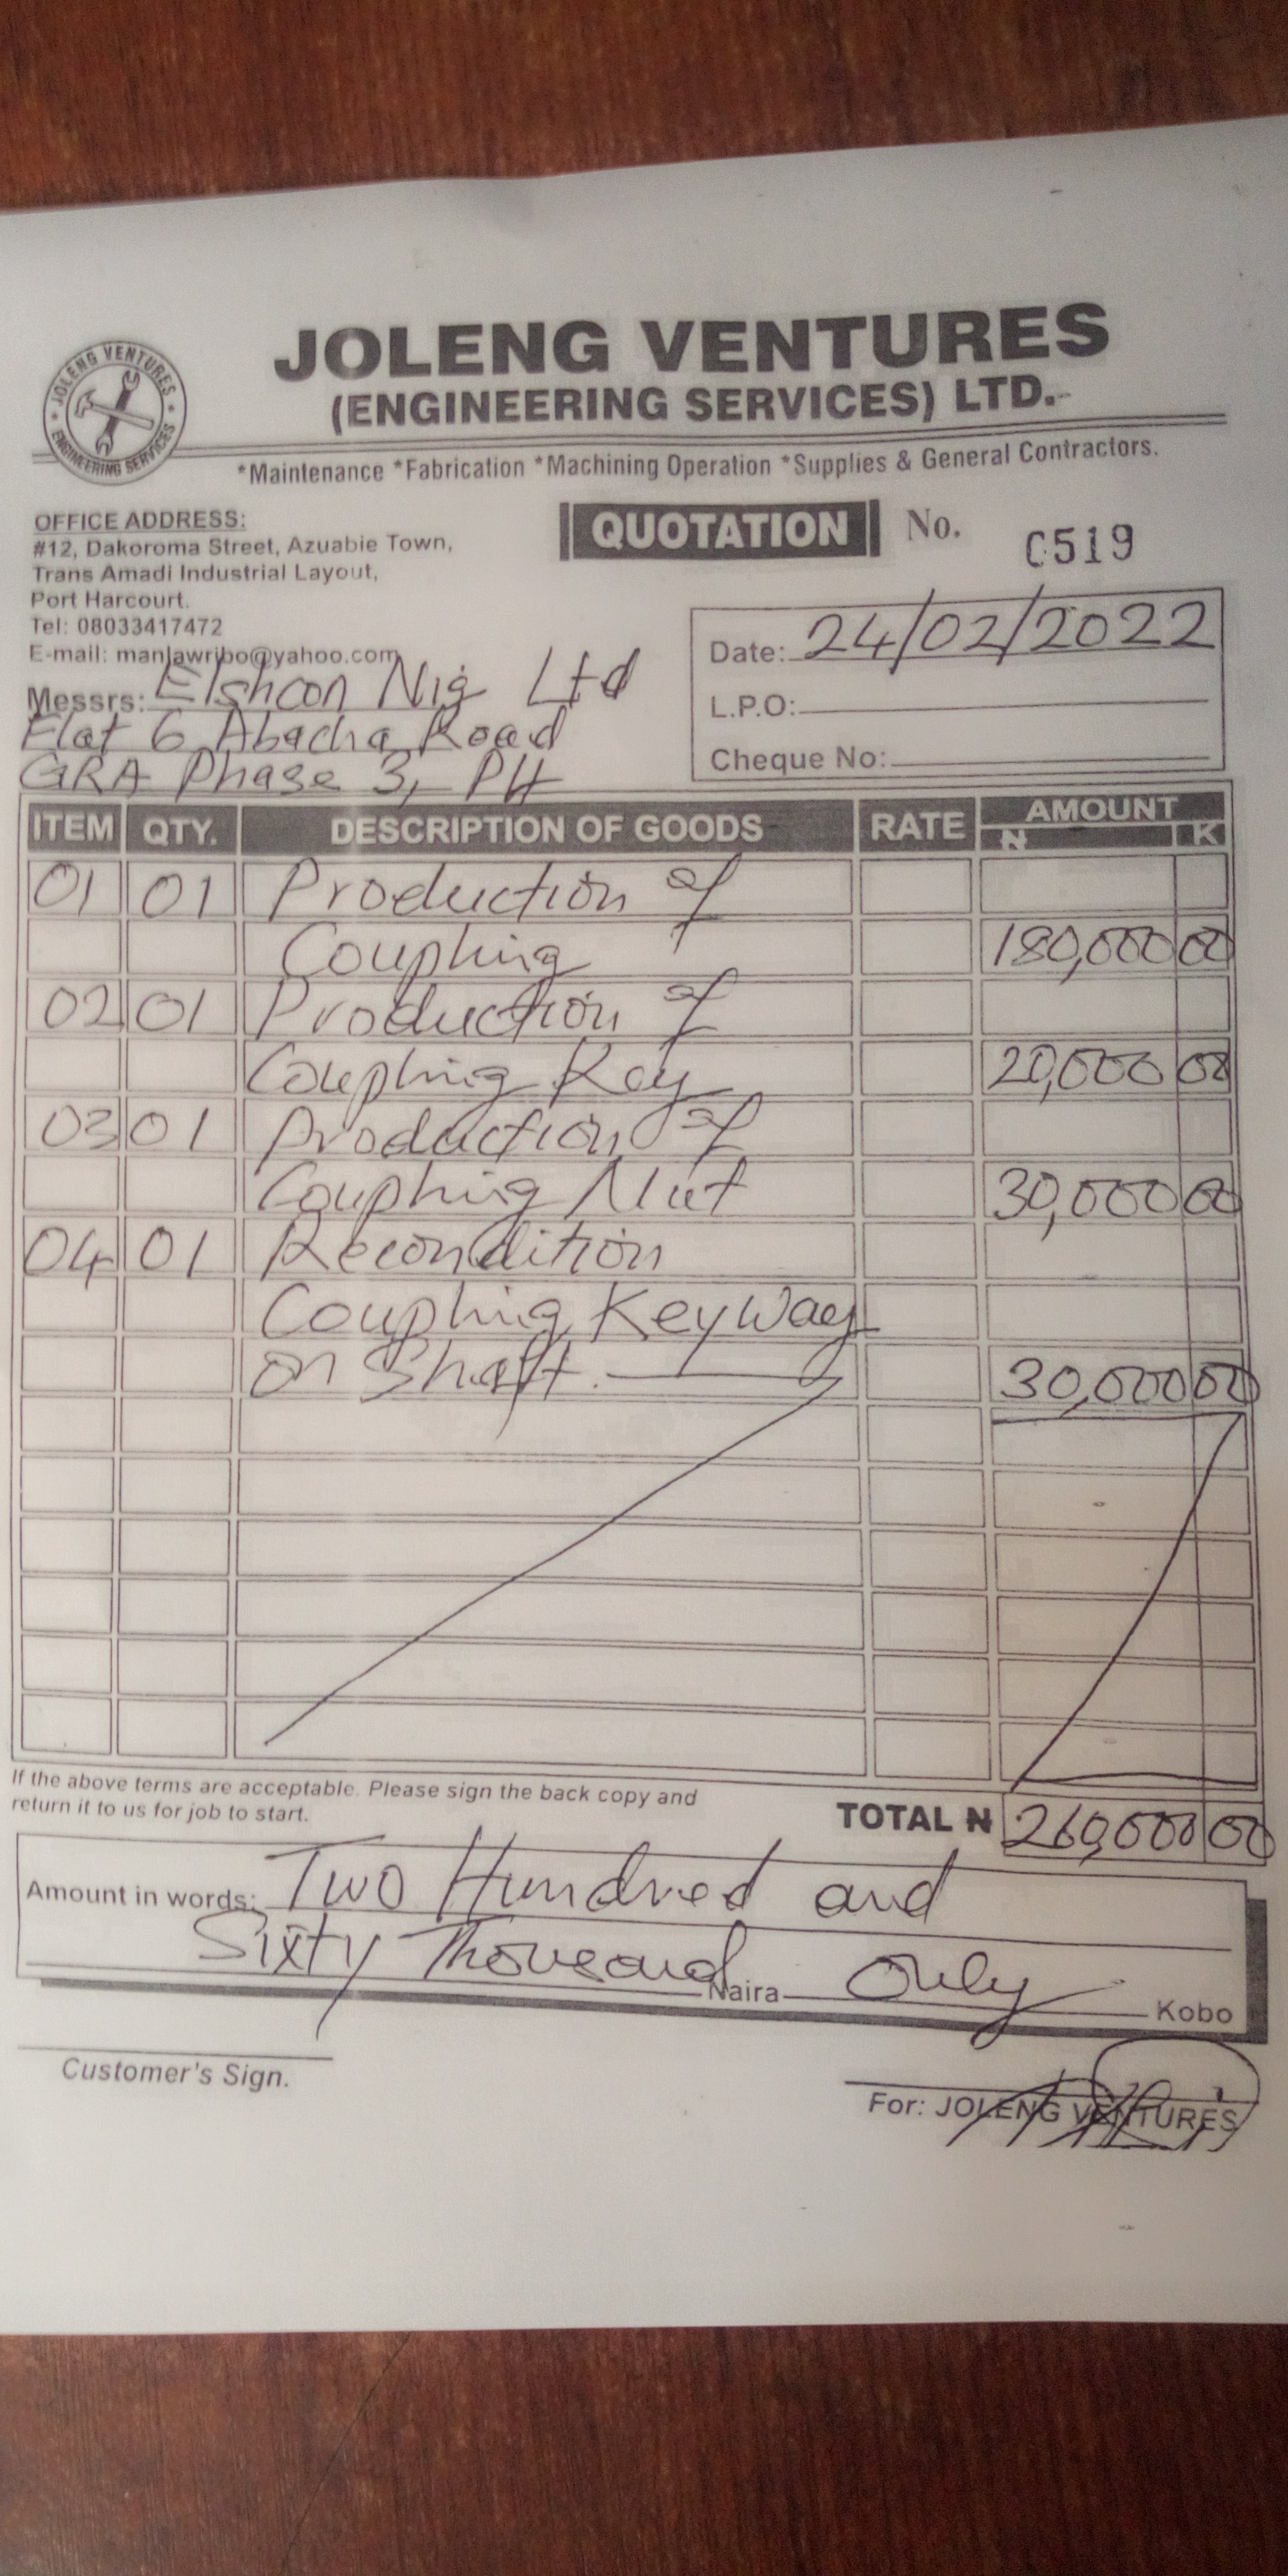 JOLENG VENTURES
(ENGINEERING SERVICES) LTD.
JOLENG VENTURES
ENGINEERING SERVICES
*Maintenance *Fabrication *Machining Operation *Supplies & General Contractors.
OFFICE ADDRESS:
#12, Dakoroma Street, Azuabie Town,
Trans Amadi Industrial Layout,
Port Harcourt.
Tel: 08033417472
E-mail: manlawribo@yahoo.com
QUOTATION No. 0519
Date: 24/02/2022
L.P.O:
Cheque No:
Messrs: Elshcon Nig Ltd
Flat 6 Abacha Road
GRA Phase 3, PH
ITEM QTY. DESCRIPTION OF GOODS RATE AMOUNT
₦ K
01 01 Production of
Coupling 180,000 00
02 01 Production of
Coupling Key 20,000 00
03 01 Production of
Coupling Nut 30,000 00
04 01 Recondition
Coupling KeyWay
on Shaft. 30,000 00
If the above terms are acceptable. Please sign the back copy and
return it to us for job to start.
TOTAL ₦ 260,000 00
Amount in words: Two Hundred and
Sixty Thousand Naira Only Kobo
Customer's Sign.
For: JOLENG VENTURES